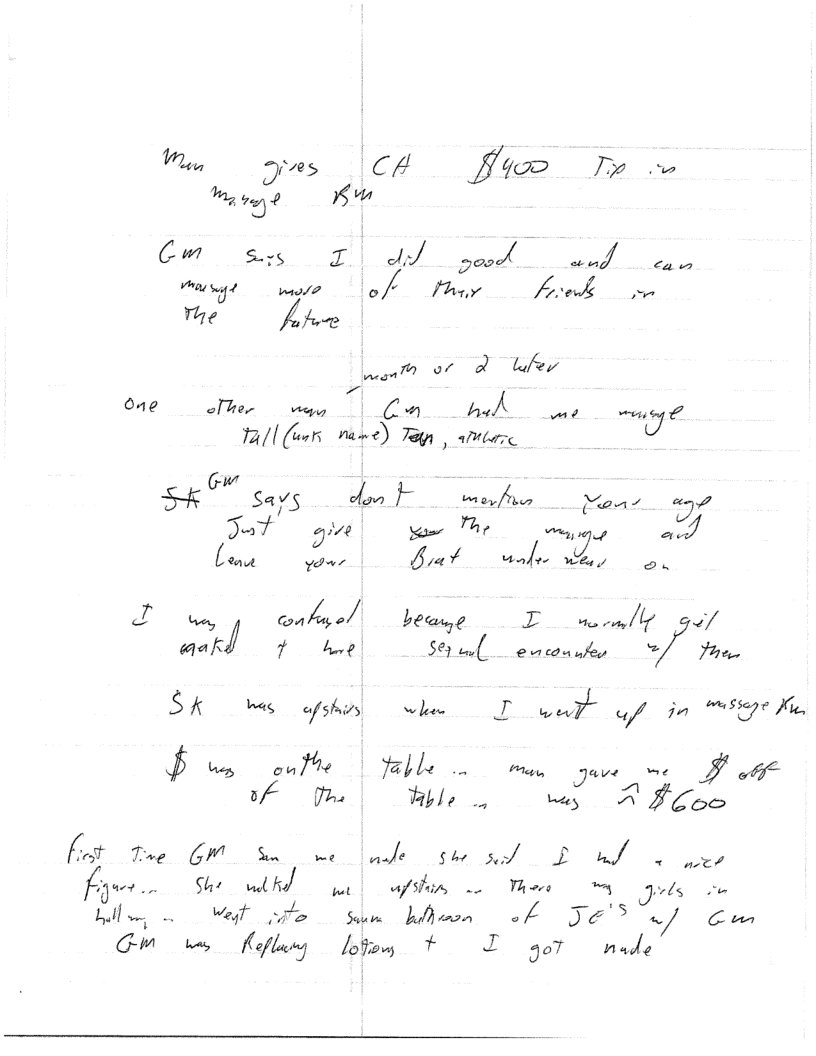 Man gives CA $400 Tip in
massage Rm
GM says I did good and can
massage more of their friends in
the future
month or 2 later
One other man GM had me massage
Tall (unk name) Tan, athletic
GM
SK says don't mention your age
Just give your the massage and
Leave your underwear on
I was confused because I normally get
naked + have sexual encounter w/ them
SK was upstairs when I went up in massage Rm
$ was on the table .. man gave me $ off
of the table .. was $600
first Time GM saw me nude she said I had a nice
figure .. She walked me upstairs .. There was girls in
hallway .. Went into sauna bathroom of JE'S w/ GM
GM was Replacing lotions + I got nude